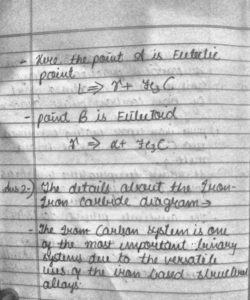 - Here, the point A is Eutectic
point
L ⇒ γ + Fe3C
- point B is Eutectoid
γ ⇒ α + Fe3C
Ans 2-) The details about the Iron-
Iron carbide diagram →
- The Iron Carbon System is one
of the most important binary
systems due to the versatile
uses of the iron based structural
alloys.